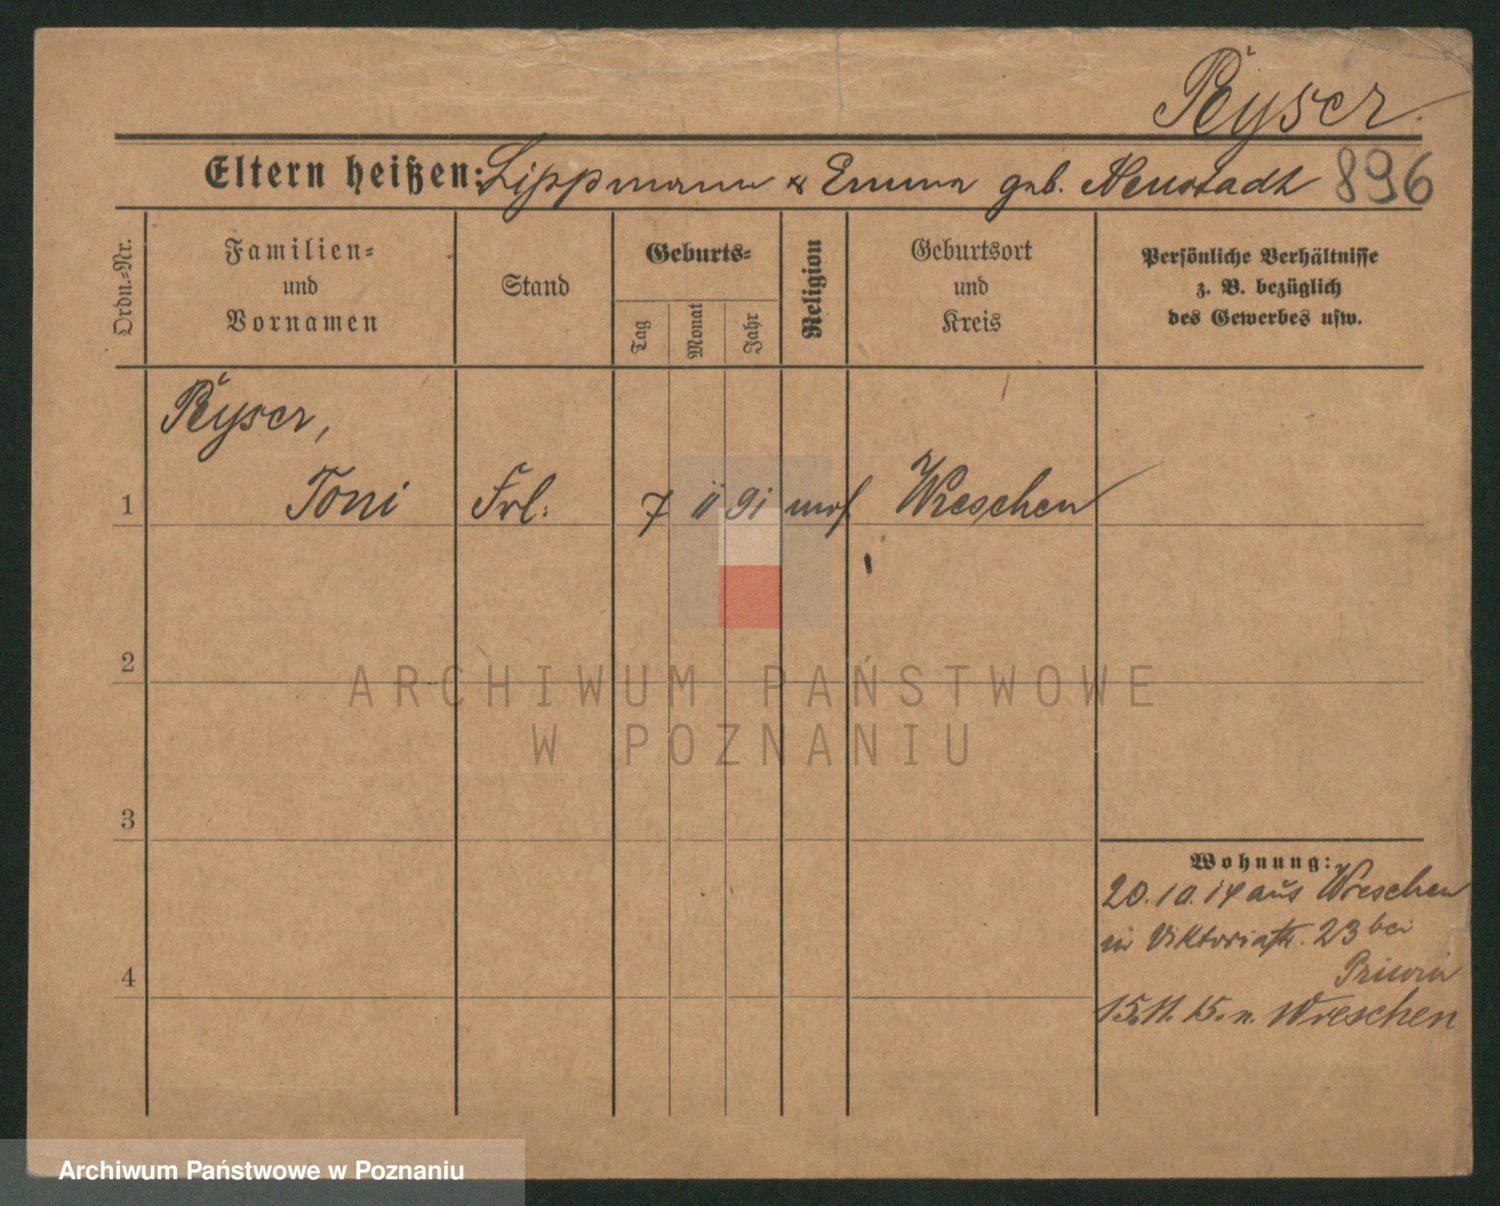 Peyser.
Eltern heißen: Lippmann & Emma geb. Neustadt 896
Ordn.-Nr.
Familien-
und
Vornamen
Stand
Geburts-
Tag
Monat
Jahr
Religion
Geburtsort
und
Kreis
Persönliche Verhältnisse
z. B. bezüglich
des Gewerbes usw.
Peyser,
1 Toni Frl. 7 11 91 mos. Wreschen
2
3
4
Wohnung:
20.10.14 aus Wreschen
in Viktoriastr. 23 bei
Priwin
15.11.15. n. Wreschen
ARCHIWUM PAŃSTWOWE
W POZNANIU
Archiwum Państwowe w Poznaniu